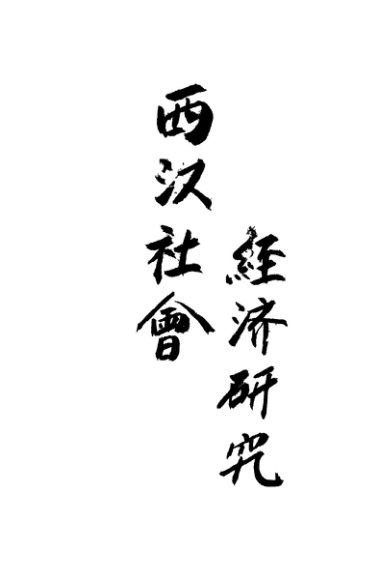 西汉社會
経济研究